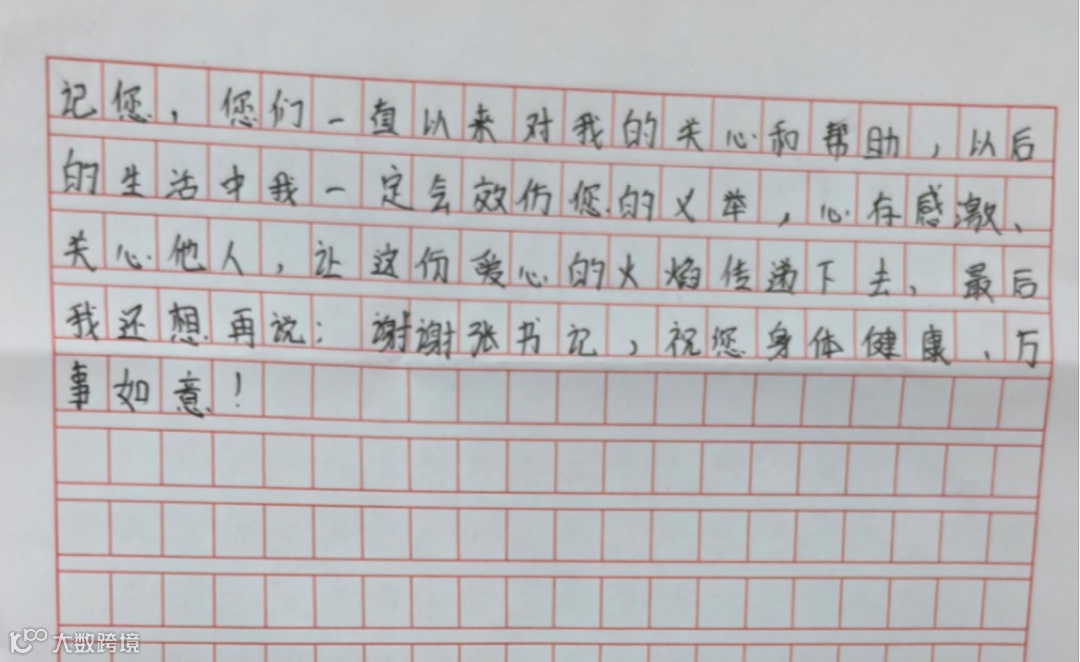 记您，您们一直以来对我的关心和帮助，以后
的生活中我一定会效仿您的义举，心存感激、
关心他人，让这份爱心的火焰传递下去、最后
我还想再说：谢谢张书记，祝您身体健康、万
事如意！
大数跨境